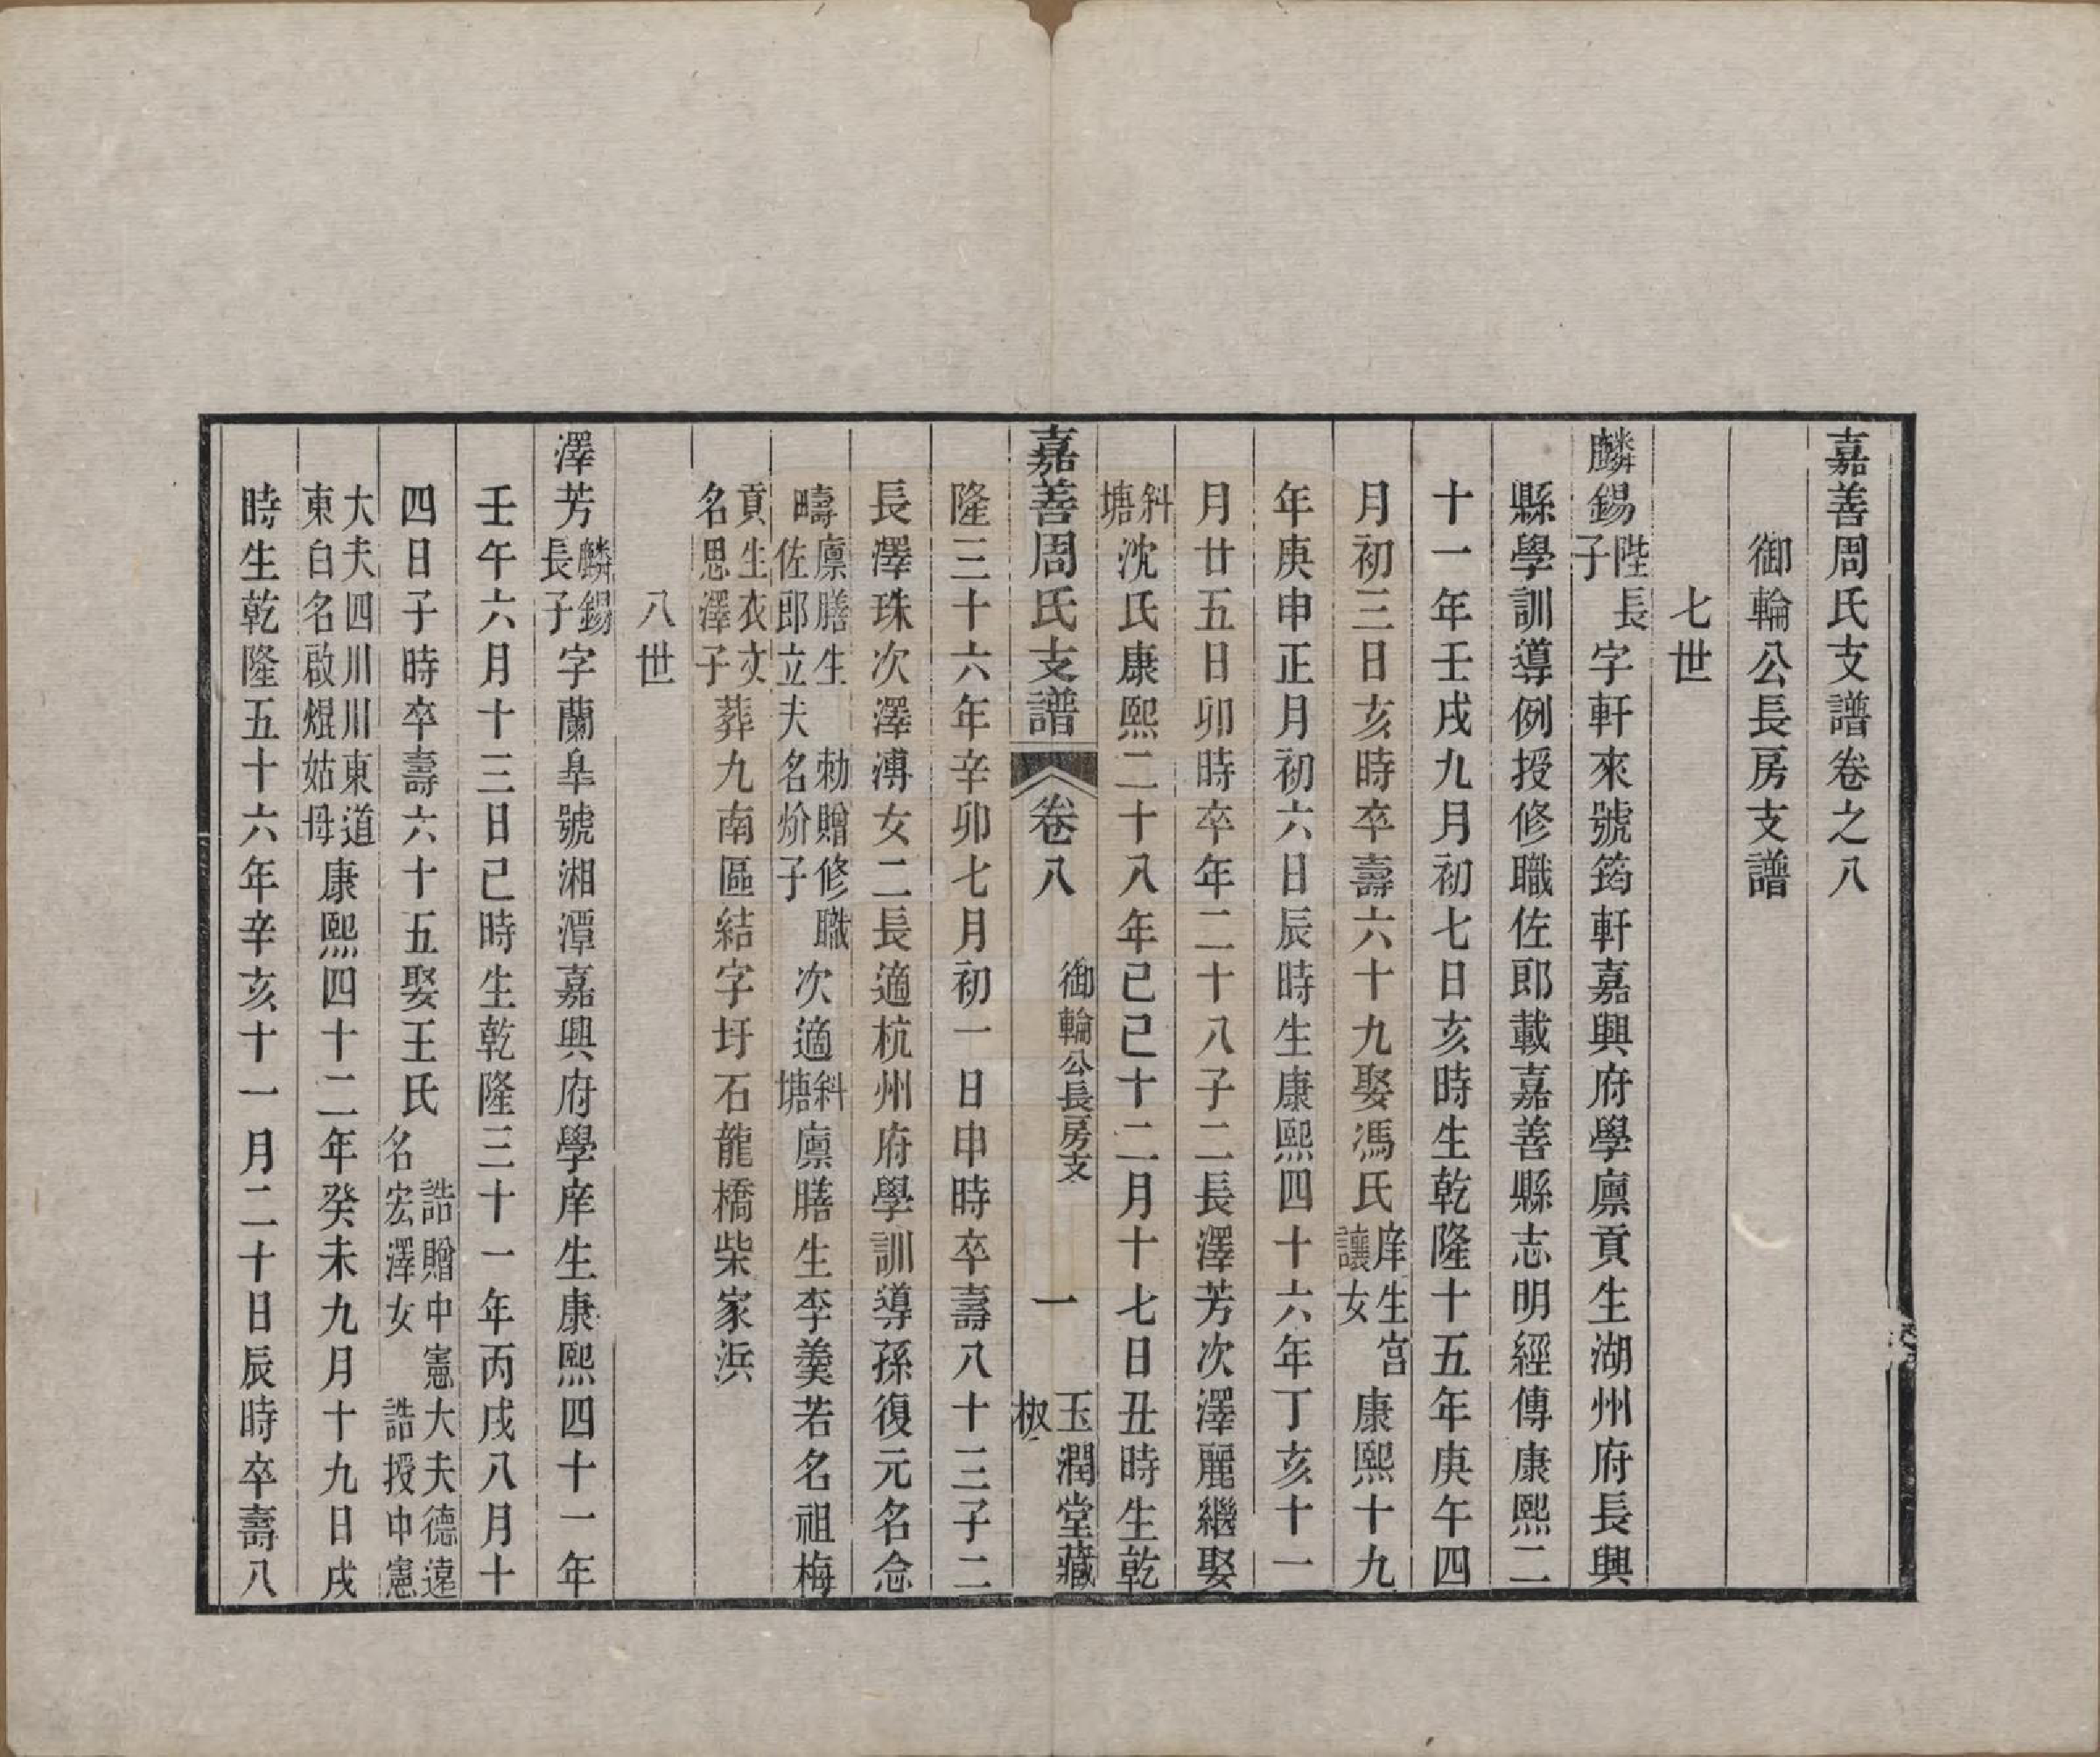 嘉善周氏支譜卷之八
御輪公長房支譜
七世
麟錫陛長子字軒來號筠軒嘉興府學廩貢生湖州府長興
縣學訓導例授修職佐郎載嘉善縣志明經傳康熙二
十一年壬戌九月初七日亥時生乾隆十五年庚午四
月初三日亥時卒壽六十九娶馮氏庠生宮讓女康熙十九
年庚申正月初六日辰時生康熙四十六年丁亥十一
月廿五日卯時卒年二十八子二長澤芳次澤麗繼娶
斜塘沈氏康熙二十八年己巳十二月十七日丑時生乾
嘉善周氏支譜 卷八 御輪公長房支 一 玉潤堂藏板
隆三十六年辛卯七月初一日申時卒壽八十三子二
長澤珠次澤溥女二長適杭州府學訓導孫復元名念
疇廩膳生 勅贈修職佐郎立夫名炌子次適斜塘廩膳生李羹若名祖梅
貢生衣文名思澤子葬九南區結字圩石龍橋柴家浜
八世
澤芳麟錫長子字蘭臯號湘潭嘉興府學庠生康熙四十一年
壬午六月十三日己時生乾隆三十一年丙戌八月十
四日子時卒壽六十五娶王氏 誥贈中憲大夫德遠名宏澤女 誥授中憲
大夫四川川東道東白名啟焜姑母康熙四十二年癸未九月十九日戌
時生乾隆五十六年辛亥十一月二十日辰時卒壽八